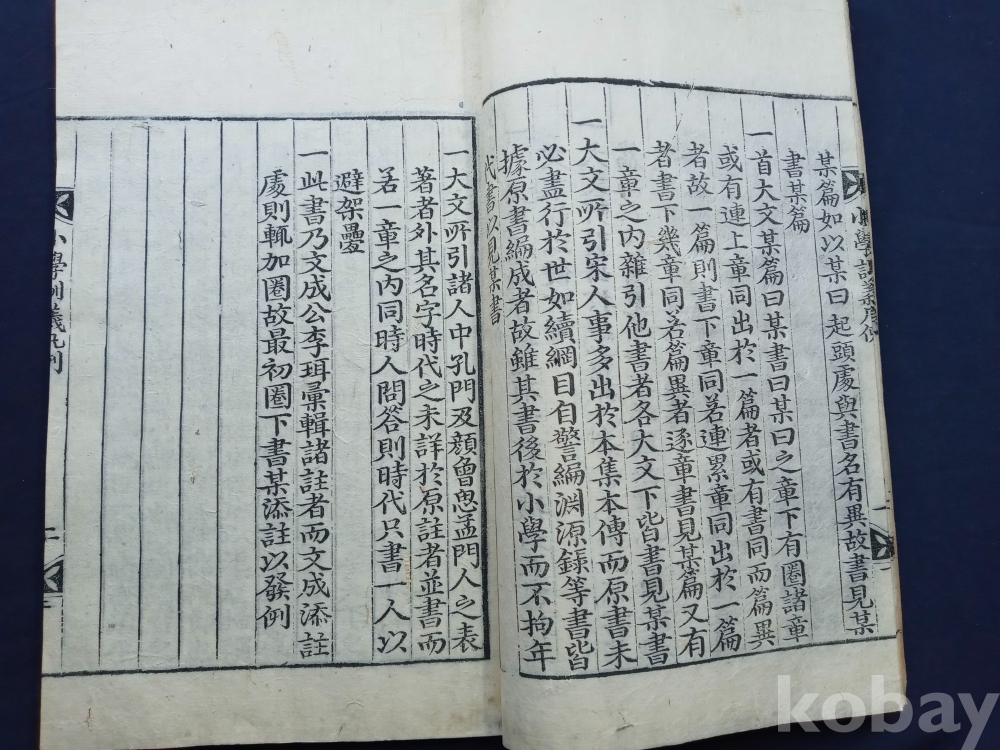 某篇如以某曰起頭處與書名有異故書見某
書某篇
一首大文某篇曰某書曰某曰之章下有圈諸章
或有連上章同出於一篇者或有書同而篇異
者故一篇則書下章同若連累章同出於一篇
者書下幾章同若篇異者逐章書見某篇又有
一章之內雜引他書者各大文下皆書見某書
一大文所引宋人事多出於本集本傳而原書未
必盡行於世如續綱目自警編淵源錄等書皆
據原書編成者故雖其書後於小學而不拘年
代書以見某書
一大文所引諸人中孔門及顏曾思孟門人之表
著者外其名字時代之未詳於原註者並書而
若一章之內同時人問答則時代只書一人以
避架疊
一此書乃文成公李珥彙輯諸註者而文成添註
處則輒加圈故最初圈下書某添註以發例
小學
二
kobay